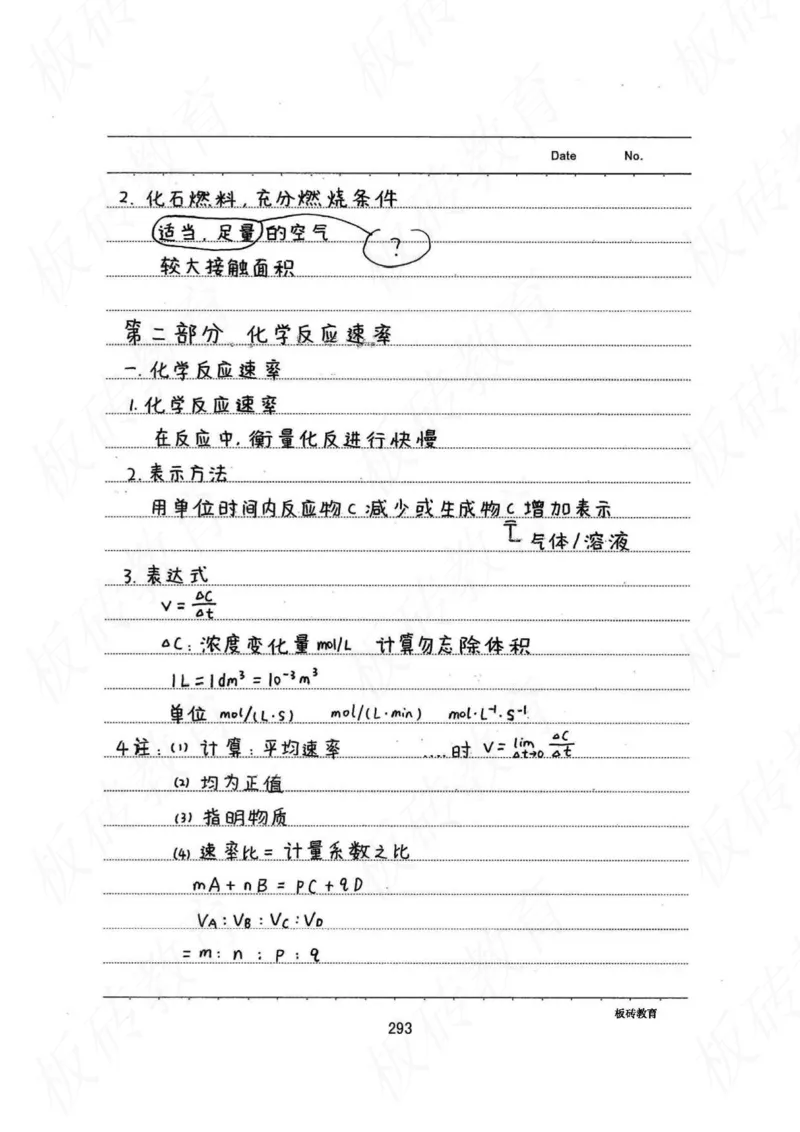 Date No.
2. 化石燃料,充分燃烧条件
适当,足量的空气 (?)
较大接触面积
第二部分 化学反应速率
一.化学反应速率
1.化学反应速率
在反应中,衡量化反进行快慢
2.表示方法
用单位时间内反应物C减少或生成物C增加表示
气体/溶液
3.表达式
V = ΔC/Δt
ΔC:浓度变化量mol/L 计算勿忘除体积
1L=1dm³=10⁻³m³
单位 mol/(L·s) mol/(L·min) mol·L⁻¹·s⁻¹
4注:(1)计算:平均速率 ....时 V= lim Δt→0 ΔC/Δt
(2)均为正值
(3)指明物质
(4)速率比=计量系数之比
mA+nB = pC+qD
VA:VB:VC:VD
=m:n:p:q
板砖教育
293